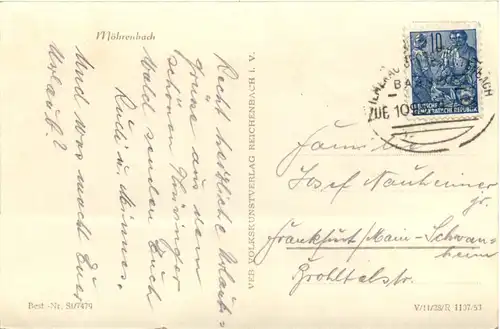 Möhrenbach
Recht herzliche Urlaubs-
grüsse aus dem
schönen Thüringer
Wald senden Euch
Rudi u. Minna.
Und was macht Euer
Urlaub?
VEB VOLKSKUNSTVERLAG REICHENBACH i. V.
10
DEUTSCHE
DEMOKRATISCHE REPUBLIK
ZUG 109
Familie
Josef Nauheimer
Frankfurt/Main-Schwan-
heim
Brohltalstr.
Best.-Nr. St/7479
V/11/28/R 1157/53